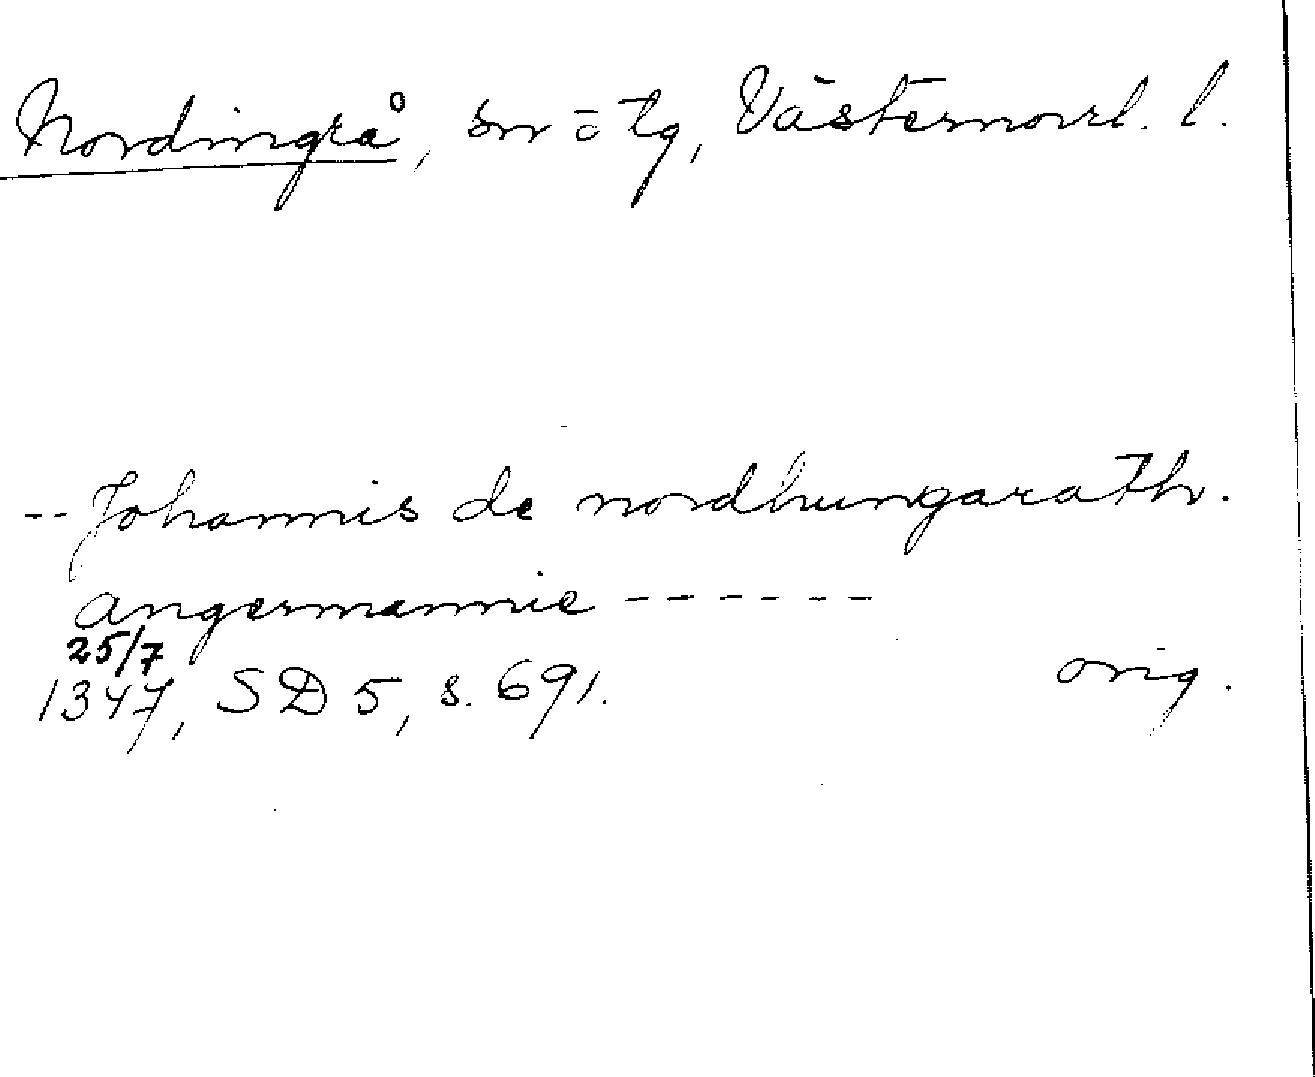 Nordingrå, sn = tg, Västernorrl. l.
-- Johannis de nordhungarath.
angermannie ------
25/7
1347, SD 5, s. 691. orig.